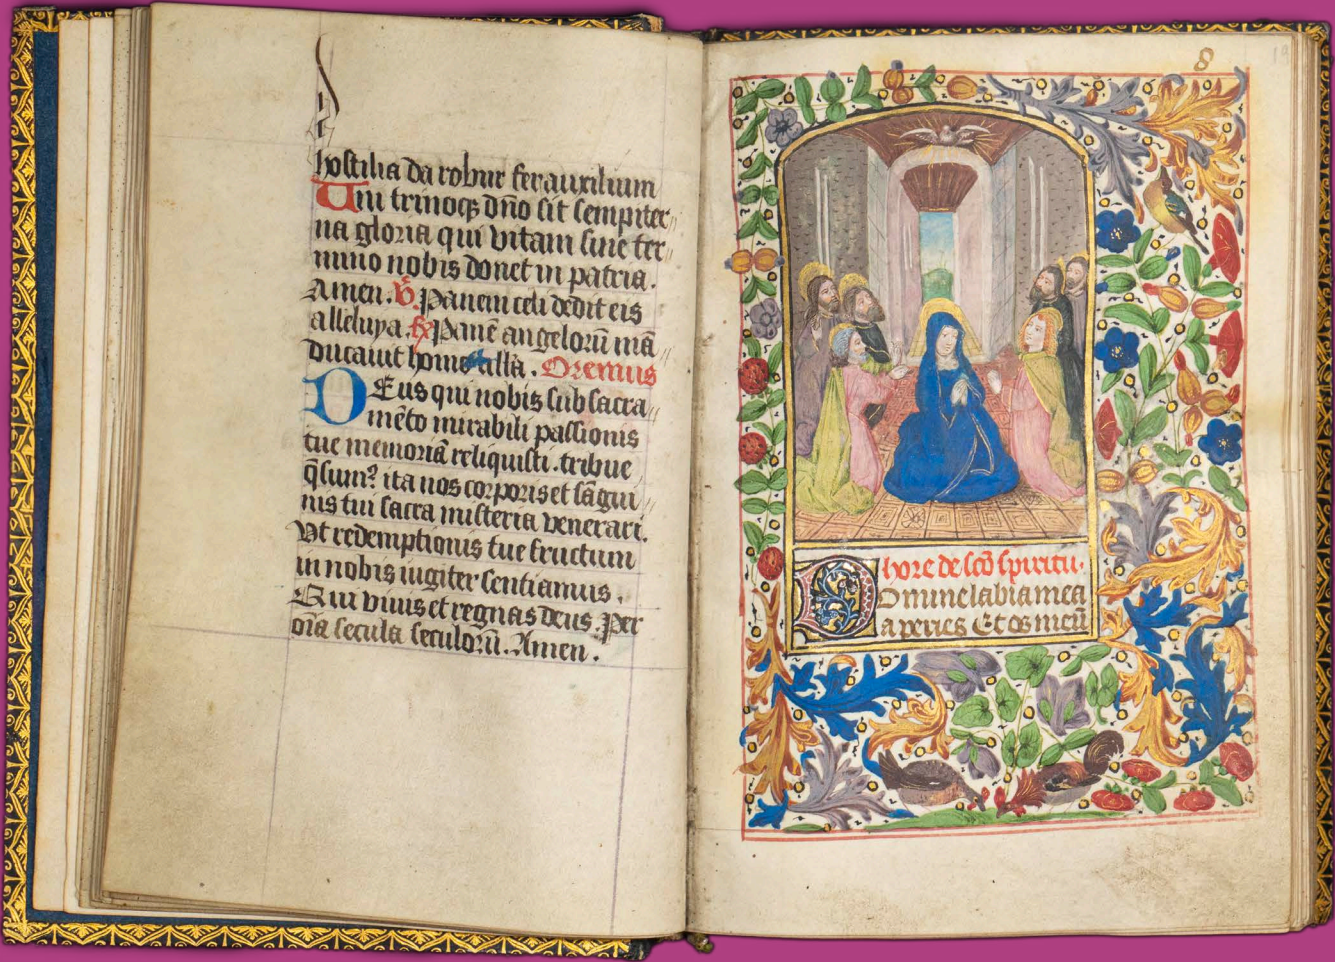 hostilia da robur fer auxilium
Uni trinoq̄ dño sit sempiter
na gloria qui vitam sine ter
mino nobis donet in patria.
Amen. ℣ Panem celi dedit eis
alleluya. ℟ Panē angelorū mā
ducauit homo alla. Oremus
Deus qui nobis sub sacra
mēto mirabili passionis
tue memoriā reliquisti. tribue
q̄sum⁹ ita nos corporis et sāgui
nis tui sacra misteria venerari.
Vt redemptionis tue fructum
in nobis iugiter sentiamus.
Qui viuis et regnas deus. Per
oīa secula seculorū. Amen.
8
19
hore de scō spiritu.
Domine labia mea
aperies Et os meū